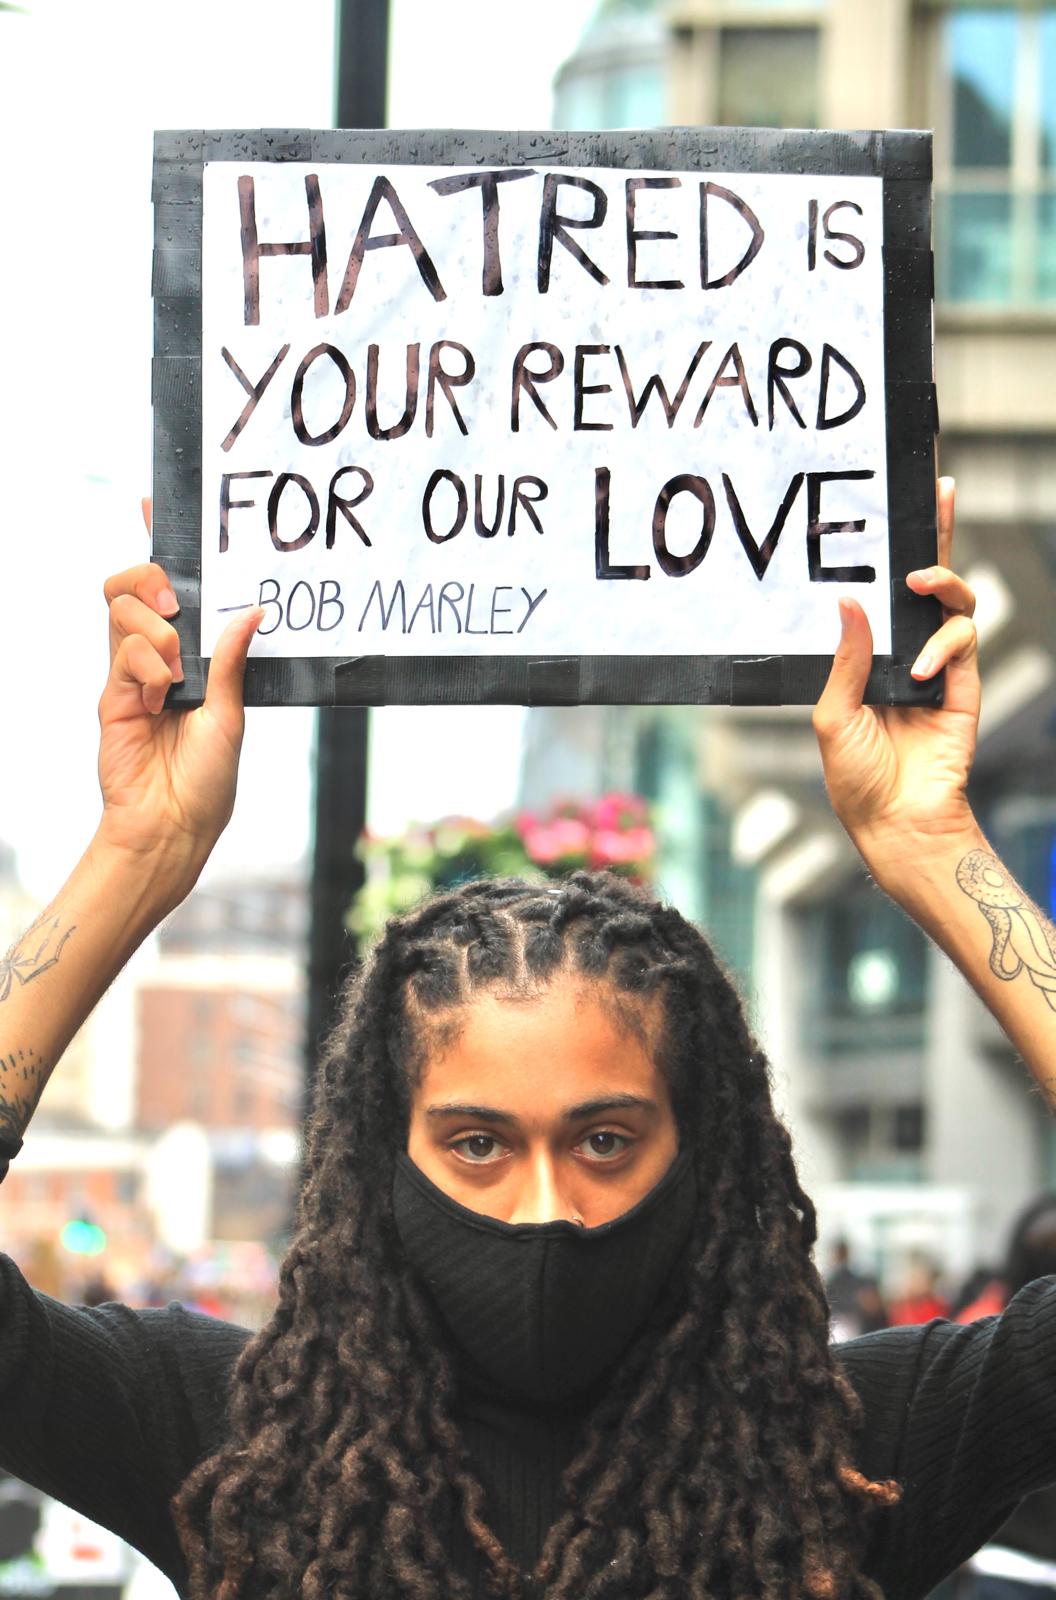 HATRED IS
YOUR REWARD
FOR OUR LOVE
-BOB MARLEY